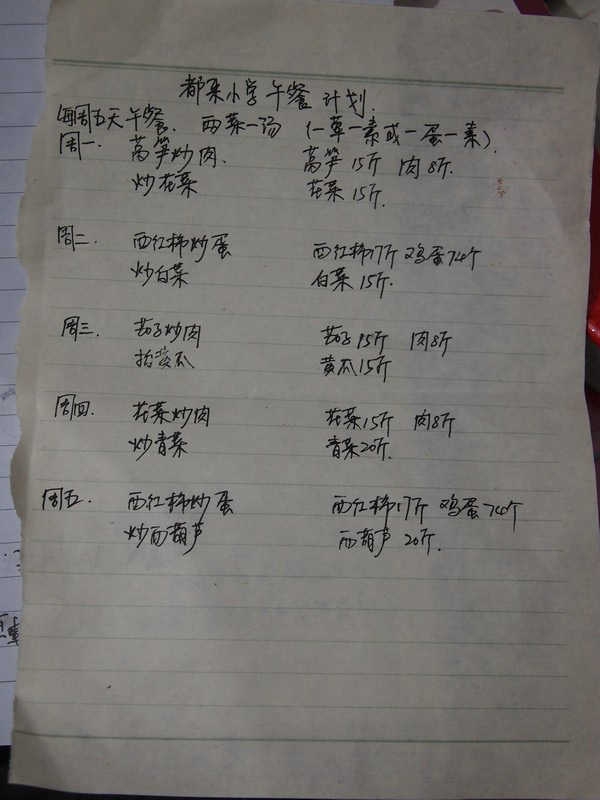 都朵小学午餐计划.
每周五天午餐. 两菜一汤 (一荤一素或一蛋一素).
周一. 莴笋炒肉. 莴笋15斤 肉8斤.
炒花菜 花菜15斤.
周二. 西红柿炒蛋 西红柿17斤 鸡蛋74个
炒白菜 白菜15斤.
周三. 茄子炒肉 茄子15斤 肉8斤
拍黄瓜 黄瓜15斤
周四. 花菜炒肉 花菜15斤 肉8斤
炒青菜 青菜20斤.
周五. 西红柿炒蛋 西红柿17斤 鸡蛋74个
炒西葫芦 西葫芦 20斤.